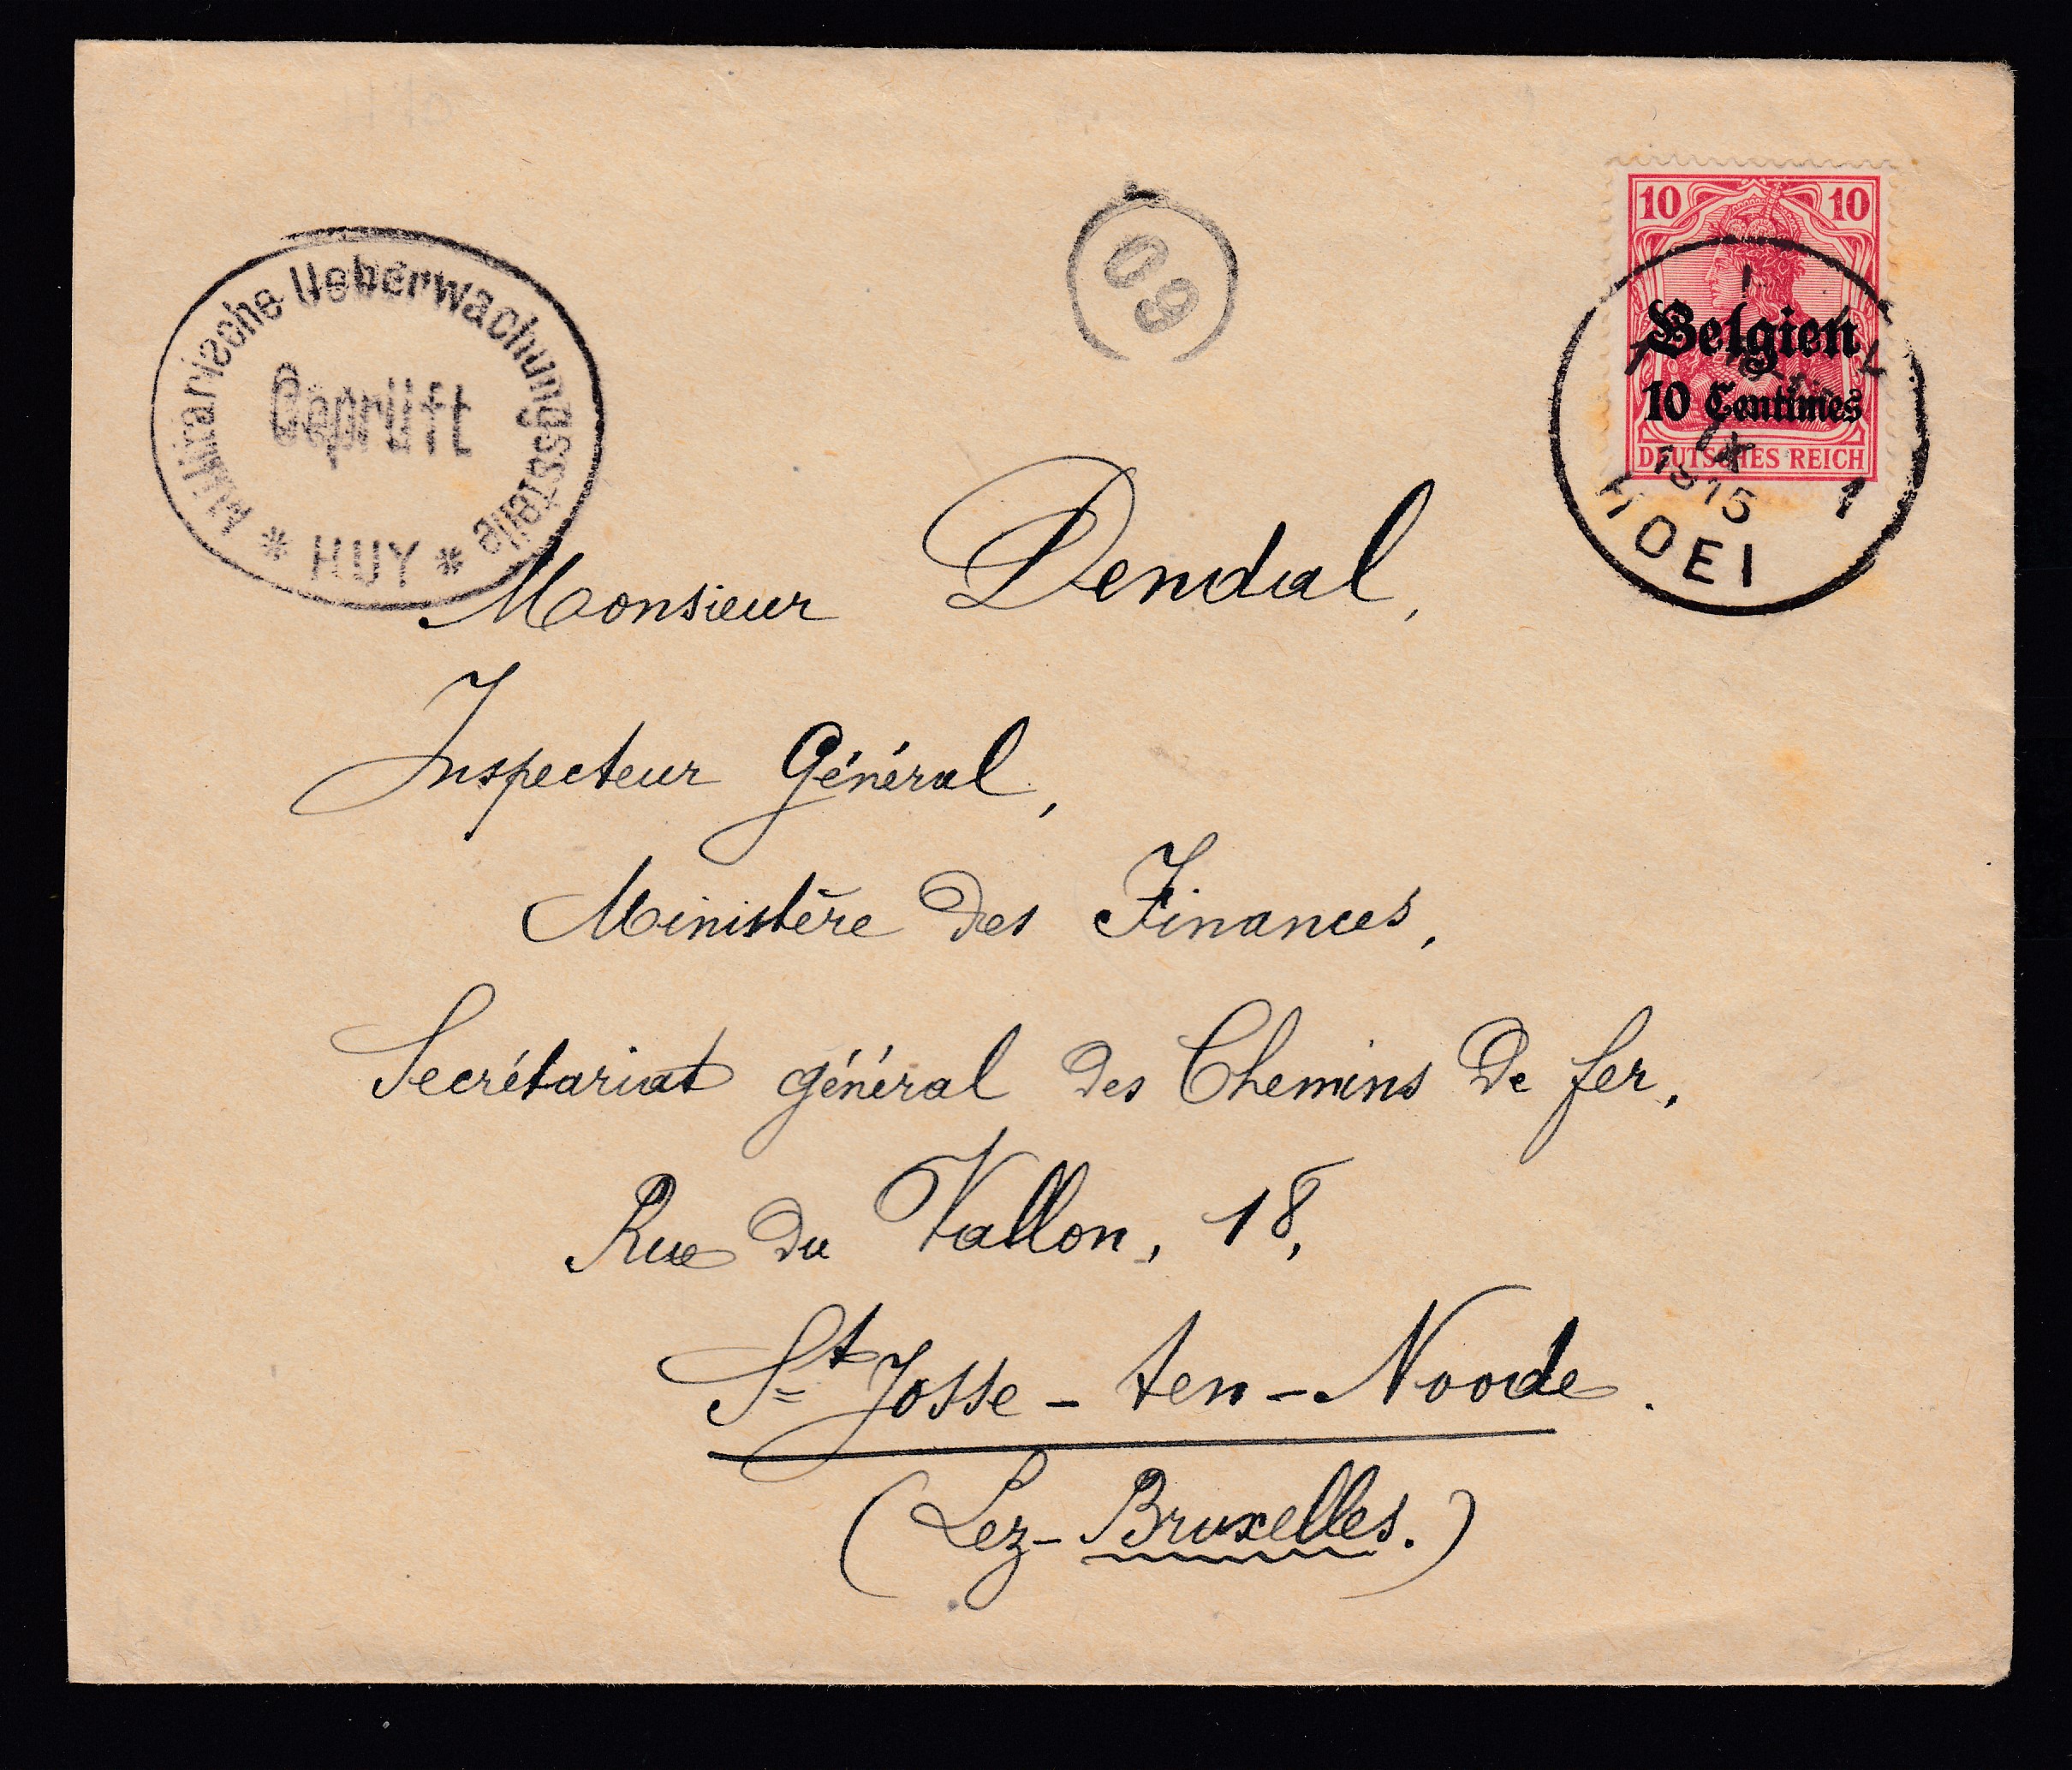 Militärische Ueberwachungsstelle
Geprüft
* HUY *
09
10 10
Belgien
10 Centimes
DEUTSCHES REICH
IX
1915
1
HOEI
Monsieur Dendal,
Inspecteur Général,
Ministère des Finances,
Secrétariat général des Chemins de fer,
Rue du Vallon, 18,
St Josse-ten-Noode.
(Lez-Bruxelles.)